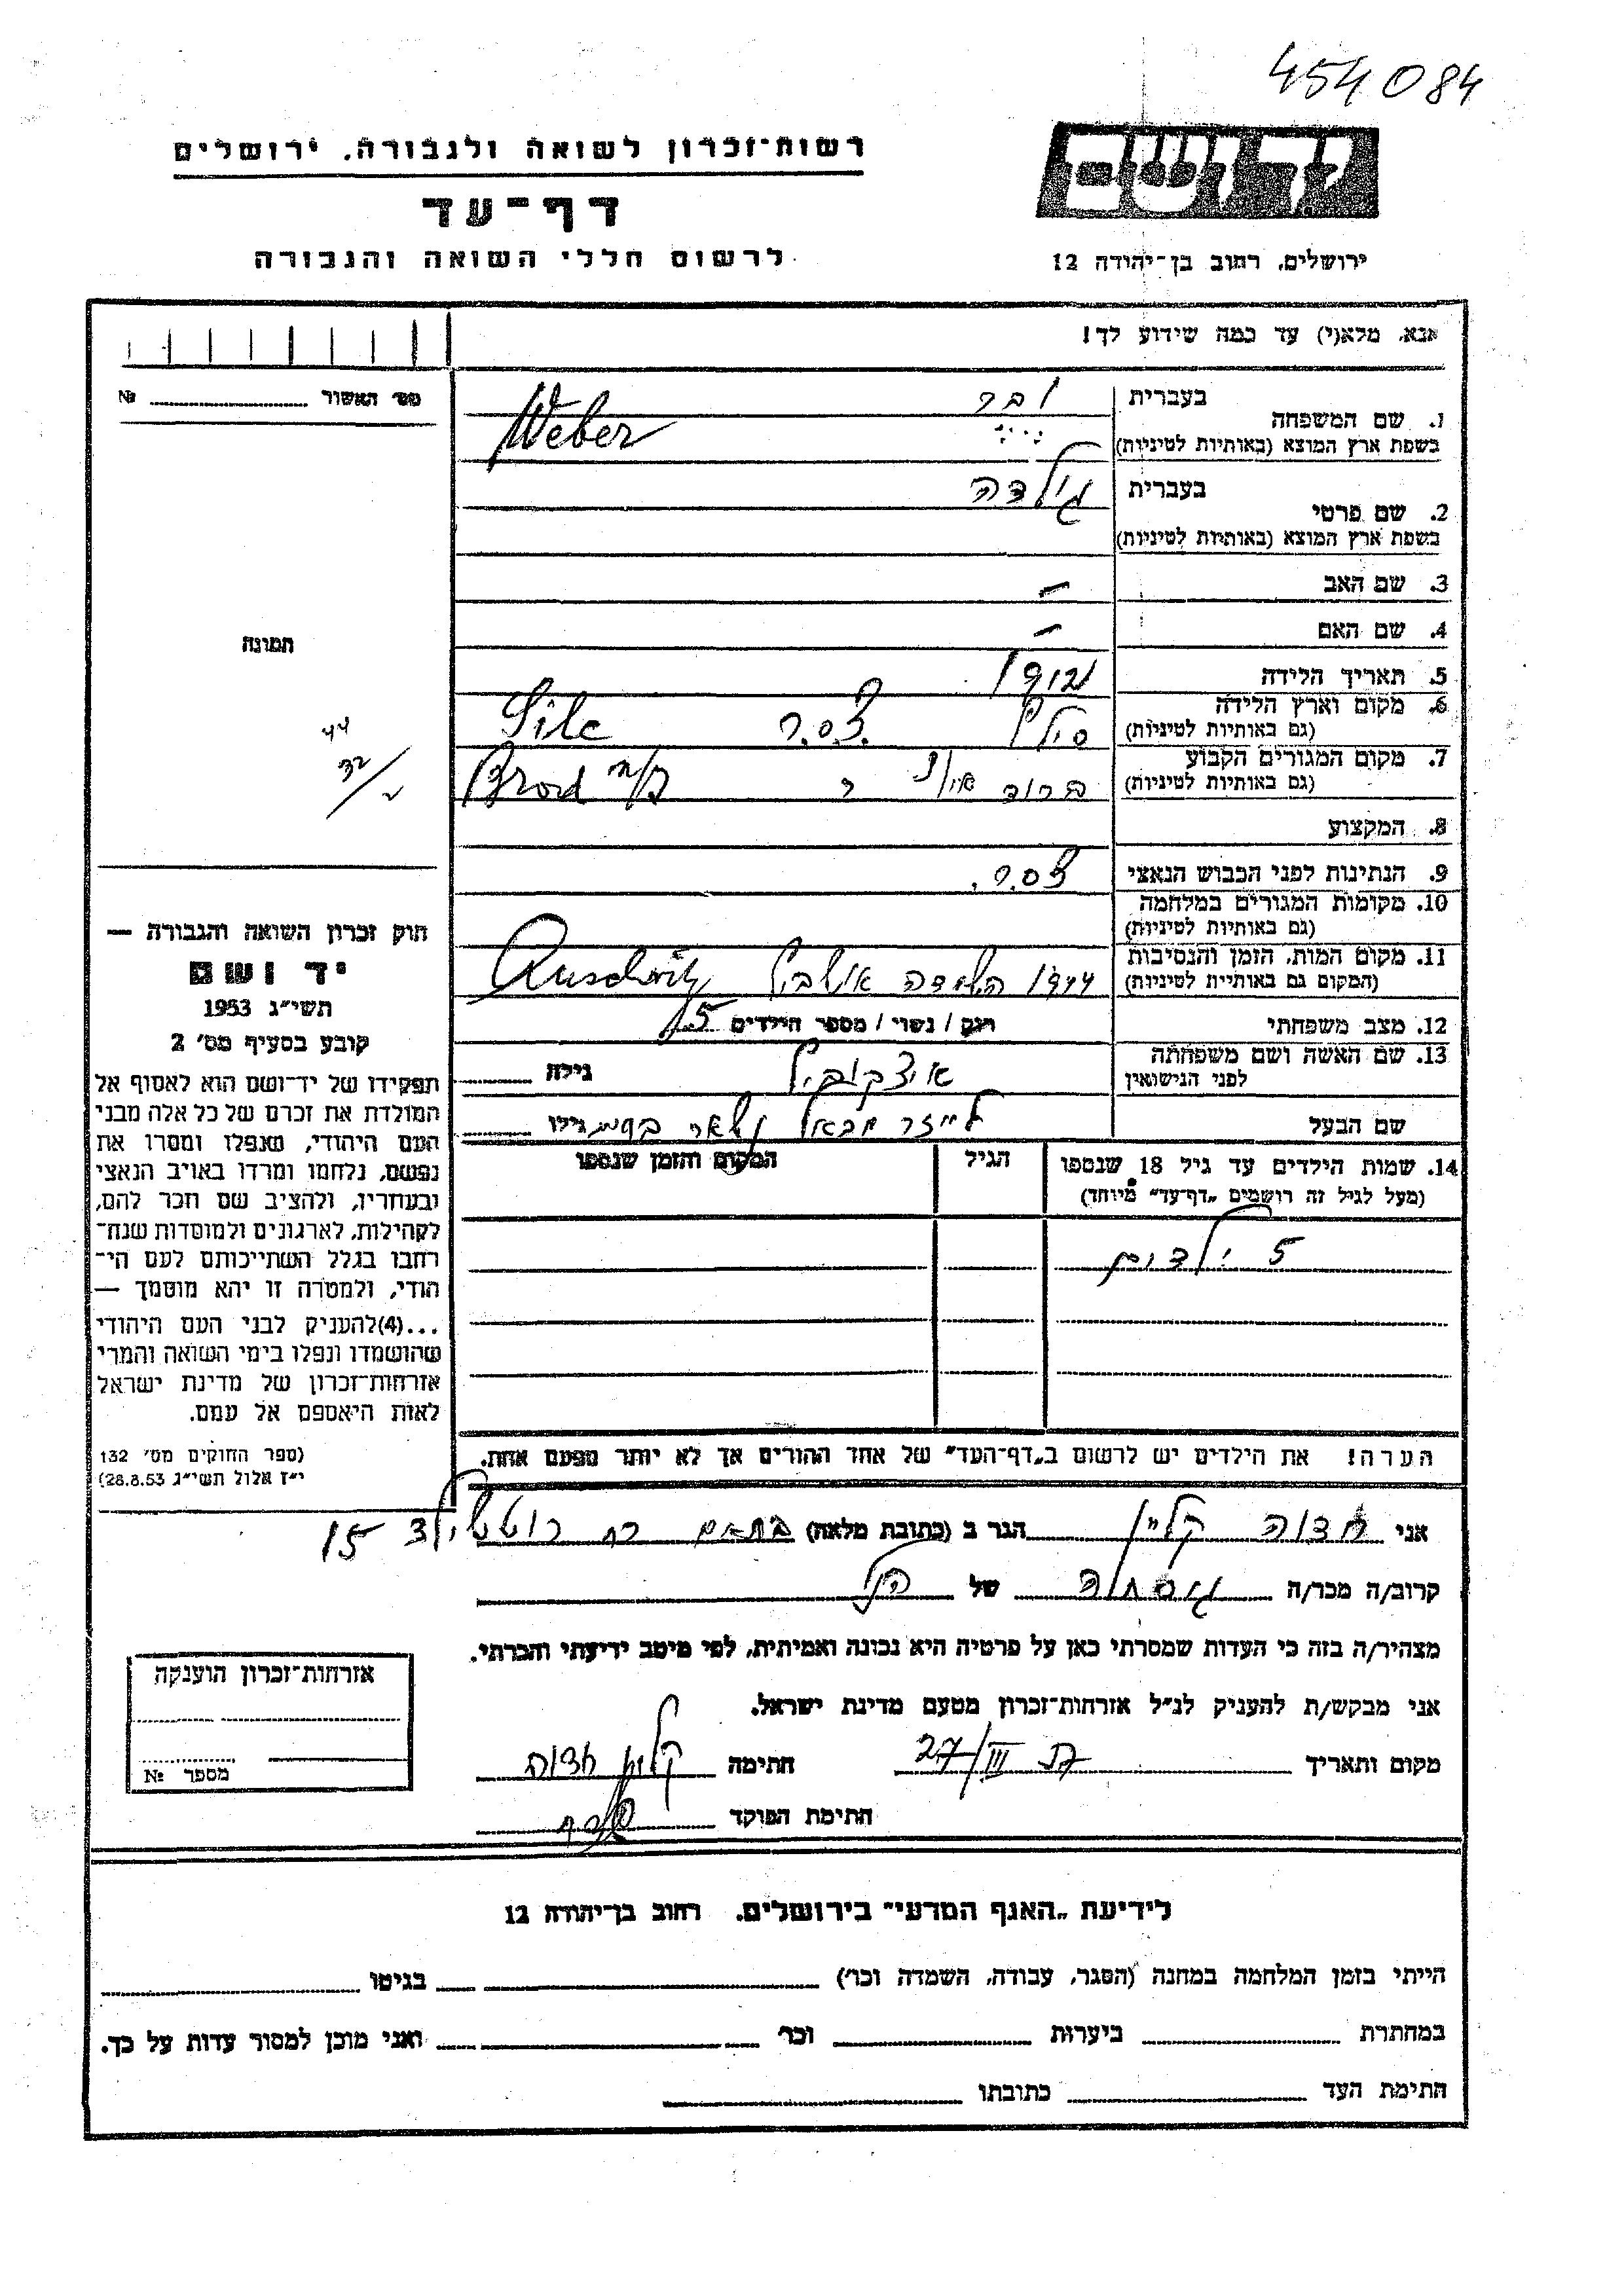 454084
רשות־זכרון לשואה ולגבורה, ירושלים
דף־עד
לרשום חללי השואה והגבורה
יד ושם
ירושלים, רחוב בן־יהודה 12
אנא, מלא(י) עד כמה שידוע לך!
מס׳ האשור № 
1. שם המשפחה
בעברית
ובר
בשפת ארץ המוצא (באותיות לטיניות)
Weber
2. שם פרטי
בעברית
גילדה
בשפת ארץ המוצא (באותיות לטיניות)
3. שם האב –
4. שם האם –
5. תאריך הלידה
6. מקום וארץ הלידה
(גם באותיות לטיניות)
צ.ס.ר. Sile
7. מקום המגורים הקבוע
(גם באותיות לטיניות)
ברוד Brod n/
8. המקצוע
9. הנתינות לפני הכבוש הנאצי צ.ס.ר.
10. מקומות המגורים במלחמה
(גם באותיות לטיניות)
11. מקום המות, הזמן והנסיבות
(המקום גם באותיות לטיניות)
1944 השמדה Auschwitz
12. מצב משפחתי
רוק / נשוי / מספר הילדים 5
13. שם האשה ושם משפחתה
לפני הנישואין
גילה
שם הבעל
גילו
14. שמות הילדים עד גיל 18 שנספו
(מעל לגיל זה רושמים „דף־עד” מיוחד)
הגיל
המקום והזמן שנספו
5 ילדים
הערה! את הילדים יש לרשום ב„דף־העד” של אחד ההורים אך לא יותר מפעם אחת.
תמונה
44
32/
חוק זכרון השואה והגבורה —
יד ושם
תשי״ג 1953
קובע בסעיף מס׳ 2
תפקידו של יד־ושם הוא לאסוף אל
המולדת את זכרם של כל אלה מבני
העם היהודי, שנפלו ומסרו את
נפשם, נלחמו ומרדו באויב הנאצי
ובעוזריו, ולהציב שם וזכר להם,
לקהילות, לארגונים ולמוסדות שנח־
רבו בגלל השתייכותם לעם הי־
הודי, ולמטרה זו יהא מוסמך —
...(4) להעניק לבני העם היהודי
שהושמדו ונפלו בימי השואה והמרי
אזרחות־זכרון של מדינת ישראל
לאות היאספם אל עמם.
(ספר החוקים מס׳ 132
י״ז אלול תשי״ג 28.8.53)
אני חדוה קליין הגר ב (כתובת מלאה) בת־ים רח רוטשילד 15
קרוב/ה מכר/ה גיסתה של הנ״ל
מצהיר/ה בזה כי העדות שמסרתי כאן על פרטיה היא נכונה ואמיתית, לפי מיטב ידיעתי והכרתי.
אני מבקש/ת להעניק לנ״ל אזרחות־זכרון מטעם מדינת ישראל.
מקום ותאריך 27/III חתימה קליין חדוה
חתימת הפוקד
אזרחות־זכרון הוענקה
מספר № 
לידיעת „האגף המדעי” בירושלים, רחוב בן־יהודה 12
הייתי בזמן המלחמה במחנה (הסגר, עבודה, השמדה וכו׳) בגיטו
במחתרת ביערות וכו׳ ואני מוכן למסור עדות על כך.
חתימת העד כתובתו